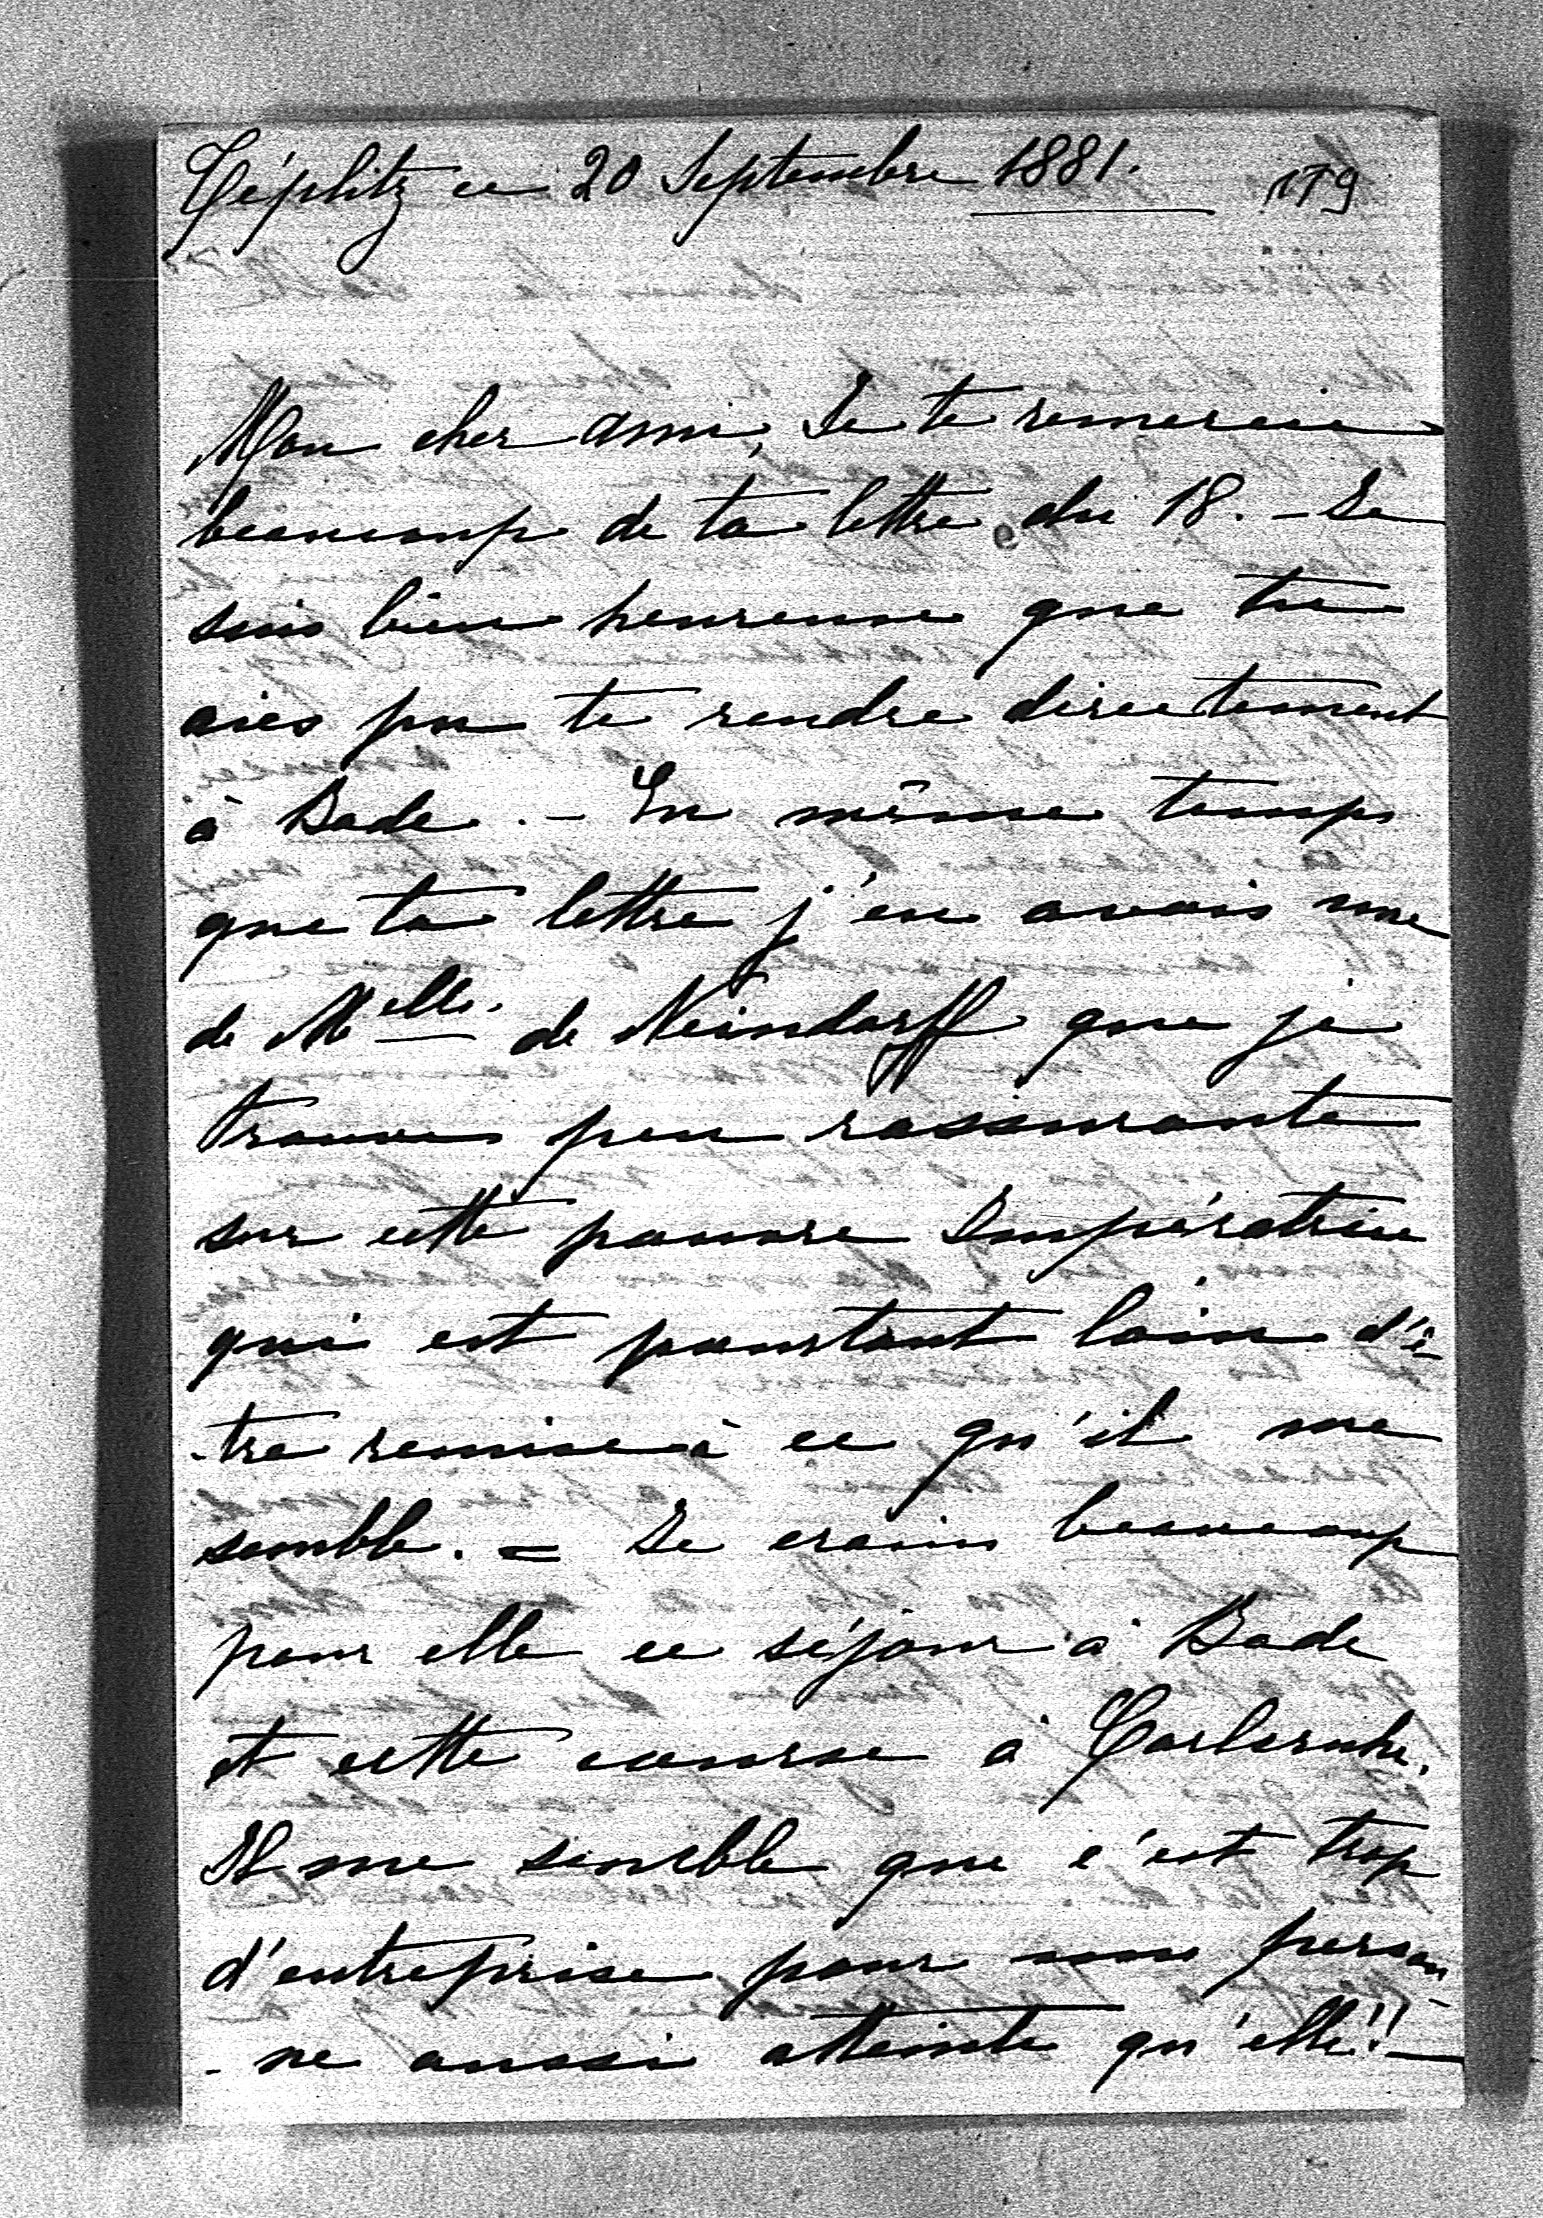 Téplitz ce 20 Septembre 1881. 179
Mon cher ami, Je te remercie
beaucoup de ta lettre du 18. – Je
suis bien heureuse que tu
aies pu te rendre directement
à Bade. – En même temps
que ta lettre j'en avais une
de Melle. de Neindorff que je
trouve peu rassurante
sur cette pauvre Impératrice
qui est pourtant loin d'ê-
-tre remise à ce qu'il me
semble. = Je crains beaucoup
pour elle ce séjour à Bade
et cette course à Carlsruhe.
Il me semble que c'est trop
d'entreprise pour une person-
-ne aussi atteinte qu'elle!! –